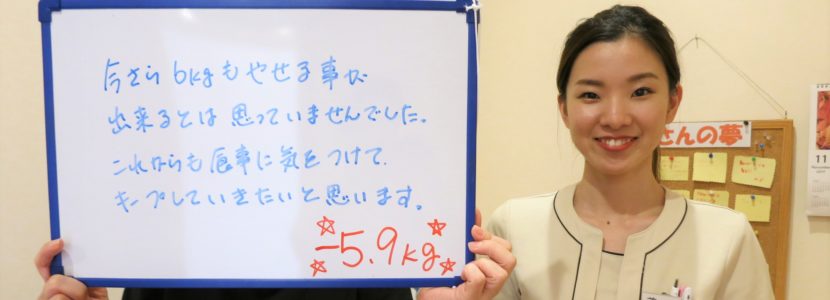 今さら6kgもやせる事が
出来るとは思っていませんでした。
これからも食事に気をつけて、
キープしていきたいと思います。
-5.9kg
さんの夢
11